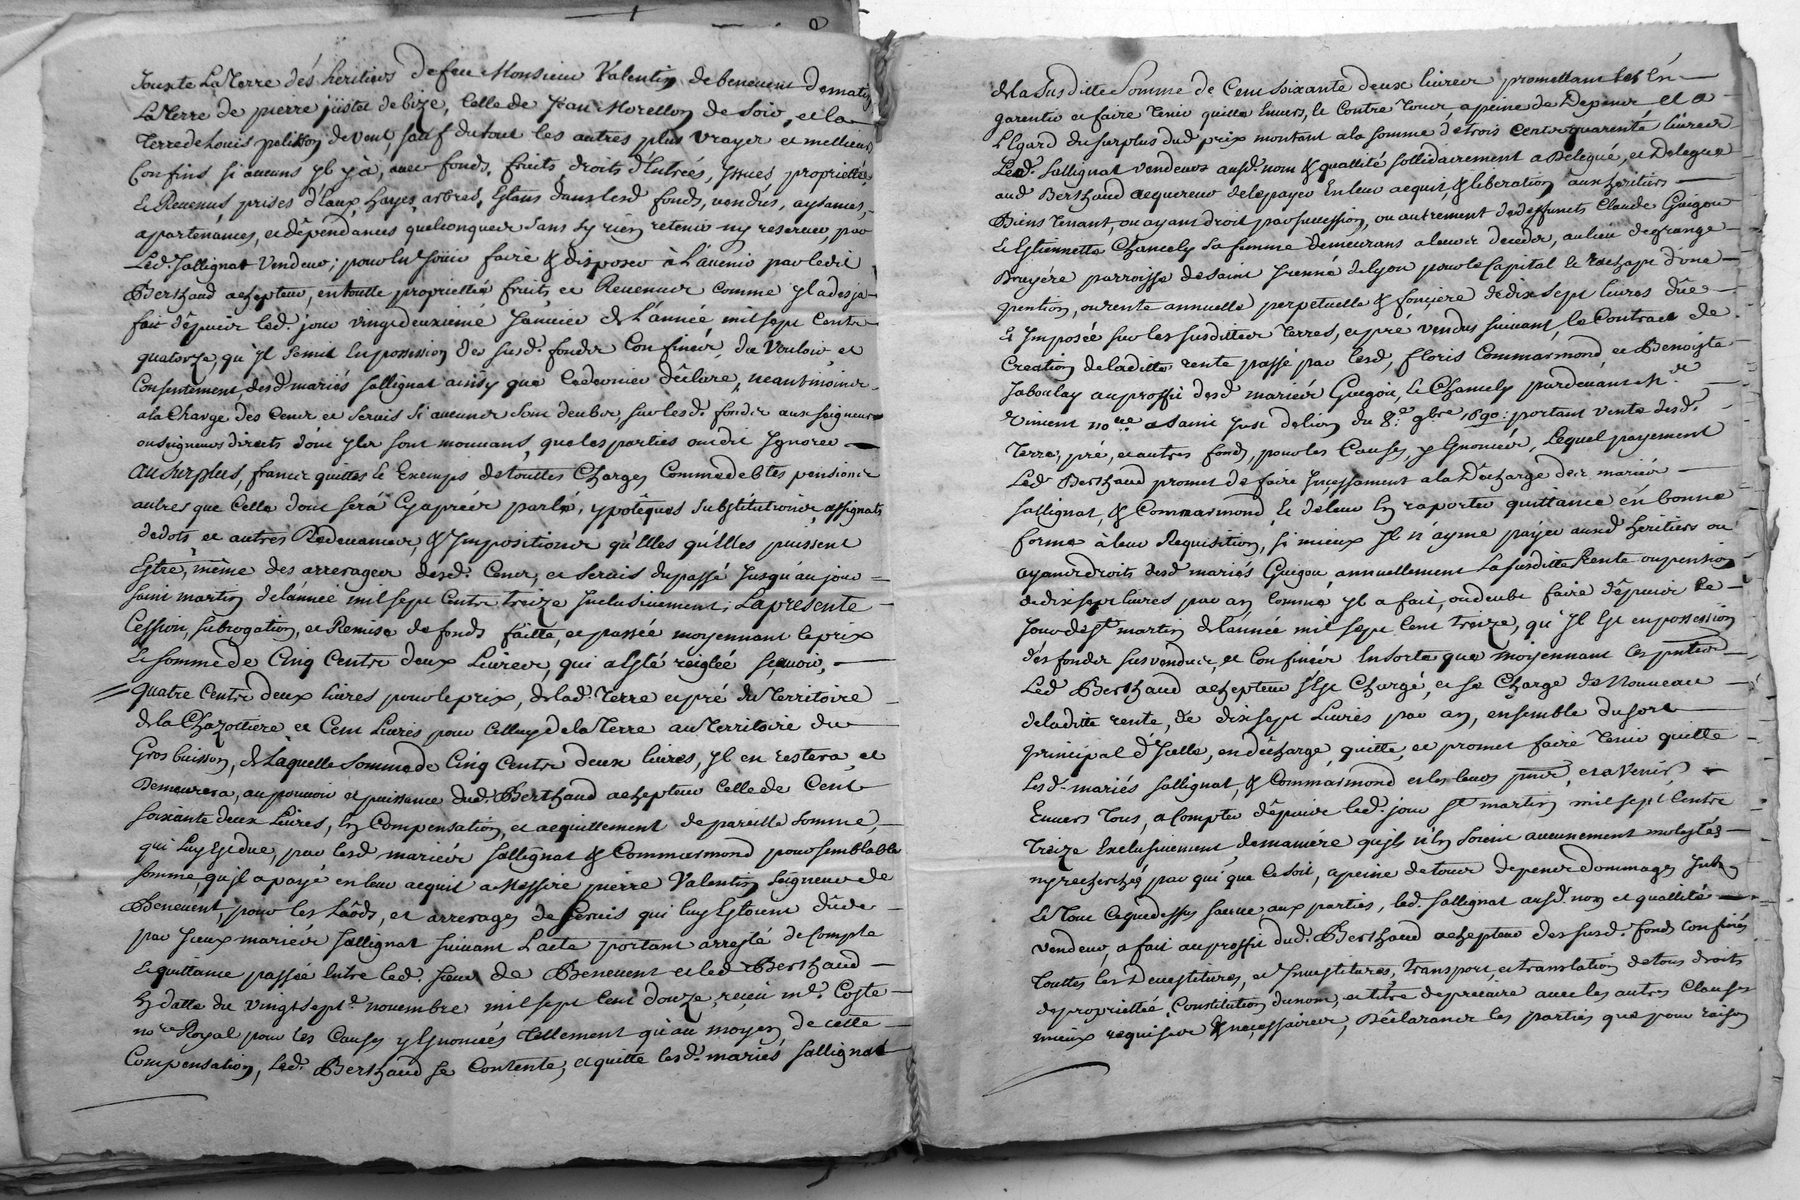 Jouxte La Terre dés heritiers de feu Monsieur Valentin de beneuent de
La Terre de pierre jüstet de bize, Celle de Jean Morellon de Soio, et la
Terre de Louis pelisson devent, sauf du tout les autres plus vrayes et mellieurs
Confins si aucuns yl y à, auec fonds, fruits droits d'Entrées, yssues proprietées
& Reuenus prises d'Eaux, hayes, arbres, Estans dans lesd fonds, vendus, aysances,
appartenances, et dépendances quelconques sans s'y rien retenir ny reseruer, par
Led. Sallignat Vendeur; pour en Jouir faire & disposer à L'auenir par ledit
Berthaud achepteur, en toutte proprietteé fruits, et Reuenus Comme yl a desja
fait dépuis led. jour vingtdeuxieme Januier de L'année mil sept Cents
quatorze, qu'Jl Semit En possession des susd. fonds Confinés, du Vouloir, et
Consentement, desd mariés Sallignat ainsy que Ce dernier déclare, neantmoins
a la Charge des Cens et Seruis si aucuns sont deubs, sur lesd. fonds aux seigneurs
ou seigneurs directs dont yls sont mouuans, que les parties ont dit Jgnorer
au Surplus, francs quittes & Exempts de touttes Charges Comme debtes pensions
autres que Celle dont sera Cy apres parlé, ypotéques substitutions, assignats
de dots et autres Redeuances, & Jmpositions qu'Elles qu'Elles puissent
Estre, même des arrerages desd. Cens, et Seruis du passé Jusqu'au jour
saint martin de l'année mil sept Cents treize Jnclusiuement; La presente
Cession, subrogation, et Remise de fonds faitte, et passée moyennant le prix
& somme de Cinq Cents deux Liures, qui a Esté réiglée sçauoir,
quatre Cents deux liures pour le prix, de lad. Terre et pré du Territoire
de la Chazottiere et Cent Liures pour Celluy de la Terre au Territoire du
Gros buisson, de Laquelle Somme de Cinq Cents deux liures, yl en restera, et
Demeurera, au pouuoir et puissance dud. Berthaud achepteur Celle de Cent
soixante deux Liures, En Compensation, et acquittement de pareille somme,
qui Luy Est due, par lesd mariés Sallignat & Commarmond pour semblable
somme, qu'jl a payé en leur acquit a Messire pierre Valentin Seigneur de
Beneuent, pour les Laôds, et arrerages de Seruis qui luy Estoient dûs
par Jceux mariés Sallignat suiuant L'acte portant arresté de Compte
& quittance passée Entre led. sieur de Beneuent et led Berthaud
En datte du vingt sept.e nouembre mil sept Cent douze, receu m.e Coste
no.re Royal pour les Causes y Enoncées tellement qu'au moyen de cette
Compensation, Led. Berthaud se Contente, et quitte lesd. mariés Sallignat
de la susditte Somme de Cent soixante deux liures promettant les En
garentir et faire tenir quittes Enuers, & Contre tous a peine de Dépens et a
L'Egard du surplus dud. prix montant a la somme de trois Cents quarente liures
Led. Sallignat vendeur ausd. nom & quallité sollidairement a Délegué, et Delegue
aud Berthaud acquereur de les payer En leur acquit, & liberation aux heritiers
Biens tenant, ou ayant droit par succession, ou autrement de deffuncts Claude Guigou
& Estiennette Chancely sa femme demeurans a leur deceder, au lieu de grange
Bruyére parroisse de Saint Jrenné de Lyon pour le Capital & Rachapt d'une
pention, ou rente annuelle perpetuelle & fonçiere de dix sept liures düe
& Jmposée sur les susdittes terres, et pré vendus suiuant, le Contract de
Creation de laditte rente passé par lesd. floris Commarmond et Benoiste
Jaboulay au proffit desd mariés Guigou, & Chancely pardeuant M.e
Vincent no.re a Saint Just de lion du 8.e 9bre 1690: portant Vente desd.
Terre, pré, et autres fonds, pour les Causes, y Enoncées, Lequel payement
Led. Berthaud promet de faire Jncessament a la Décharge des mariés
Sallignat, & Commarmond & de leur En raporter quittance en bonne
forme à leur Requisition, si mieux Jl n'ayme payer ausd heritiers ou
ayants droits desd mariés Guigou, annuellement La susditte Rente ou pension
de dix sept liures par an, Comme yl a fait, ou deube faire dépuis le
Jour de S.t martin de l'année mil sept Cent treize, qu'Jl Est en possession
dés fonds sus vendus, et Confinés En sorte que moyennant Ces pntes
Led. Berthaud achepteur s'Est Chargé, et se Charge de Nouueau
de laditte rente, de dix sept Liures par an, ensemble du sort
principal d'Jcelle, en décharge quitte, et promet faire tenir quitte
Lesd. mariés Sallignat, & Commarmond et les leurs pour, et a Venir
Enuers Tous, a Compter dépuis led. jour S.t martin mil sept Cents
Treize Exclusiuement, de maniére qu'jls n'En soient aucunement molestés
ny recherchés par qui que ce soit, a peine de tous depens dommages Jnt.
Le Tout Ce que dessus sauue aux parties, led. Sallignat ausd. nom et quallité
vendeur, a fait au proffit dud. Berthaud achepteur des susd. fonds Confinés
Touttes les Deuestitures, et Jnuestitures, transport, et translation de tous droits
de propriettéé, Constitution du nom, et titre de precaire auec les autres Clauses
mieux requises & necessaires, Déclarants les parties que pour raison